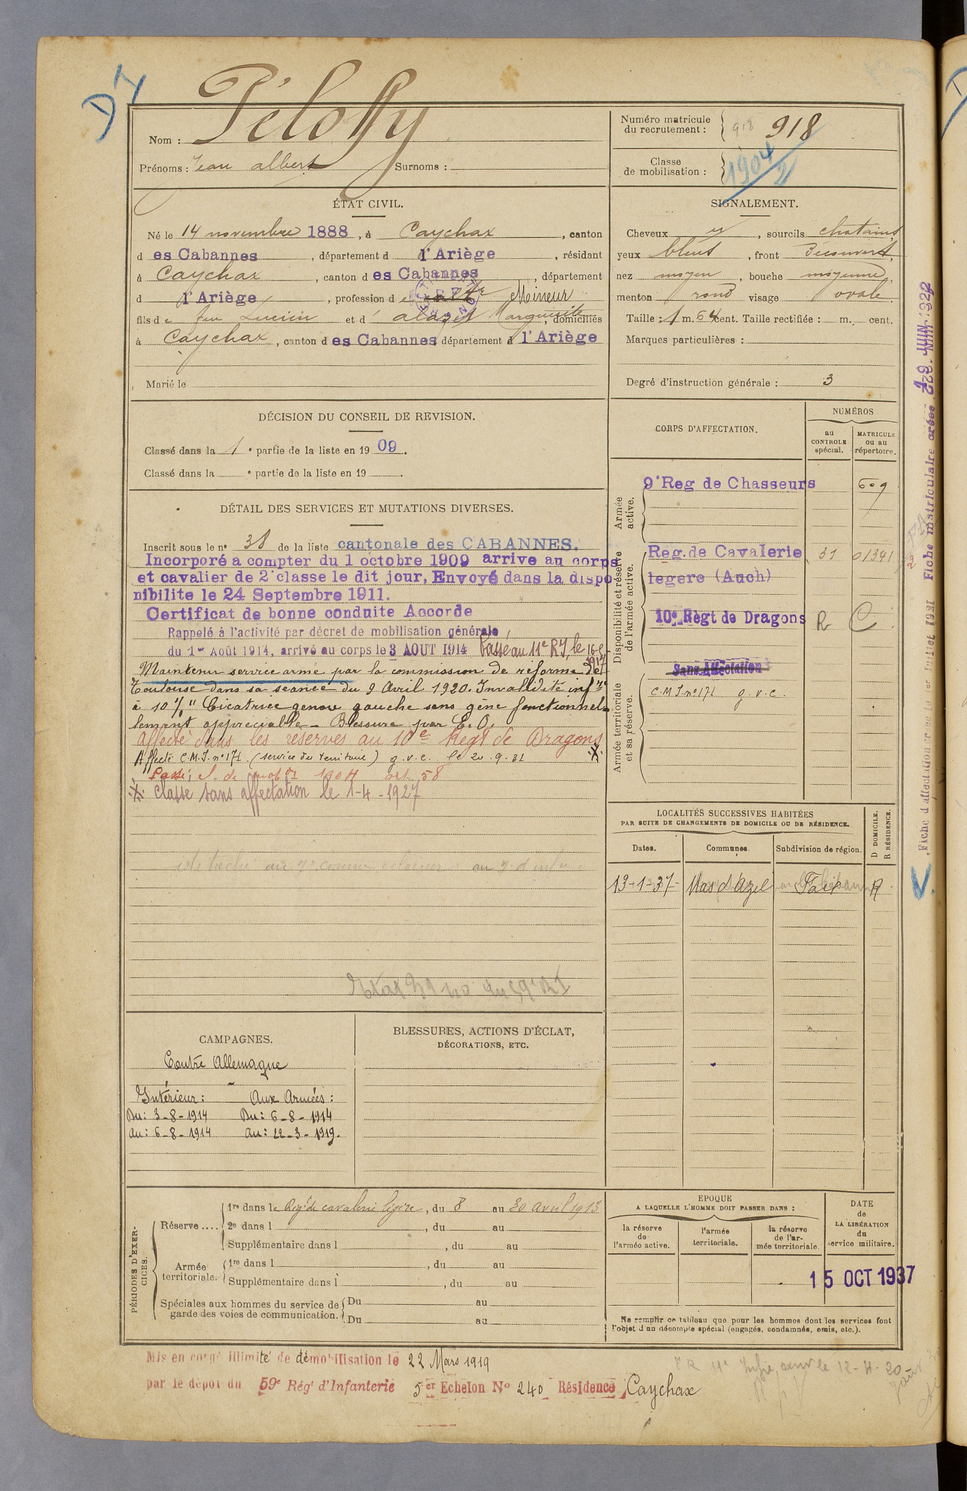 D4
Nom : Pélofy
Prénoms : Jean albert Surnoms :
Numéro matricule du recrutement : 918 918
Classe de mobilisation : 1904/2
ÉTAT CIVIL.
Né le 14 novembre 1888, à Caychax, canton
d es Cabannes, département d l'Ariège, résidant
à Caychax, canton d es Cabannes, département
d l'Ariège, profession d e Mineur
fils d e feu Lucien et d' Marguerite domiciliés
à Caychax, canton d es Cabannes département d l'Ariège
Marié le
SIGNALEMENT.
Cheveux, sourcils chatains
yeux bleus, front Découvert,
nez moyen, bouche moyenne,
menton rond visage ovale.
Taille : 1 m. 64 cent. Taille rectifiée : m. cent.
Marques particulières :
Degré d'instruction générale : 3
DÉCISION DU CONSEIL DE REVISION.
Classé dans la 1e partie de la liste en 19 09.
Classé dans la e partie de la liste en 19 .
DÉTAIL DES SERVICES ET MUTATIONS DIVERSES.
Inscrit sous le n° 38 de la liste cantonale des CABANNES.
Incorporé a compter du 1 octobre 1909 arrive au corps
et cavalier de 2e classe le dit jour, Envoyé dans la dispo-
nibilite le 24 Septembre 1911.
Certificat de bonne conduite Accorde
Rappelé à l'activité par décret de mobilisation générale
du 1er Août 1914, arrivé au corps le 3 AOUT 1914 Passe au 11e RI le
Maintenu service armé par la commission de réforme de
Toulouse dans sa séance du 9 Avril 1920. Invalidité infre
à 10 % " Cicatrice genou gauche sans gêne fonctionnel-
lement appréciable - Blessure par E. O.
Affecté dans les réserves au 10e Regt de Dragons
Affecté C.M.I. n° 171 (service du territoire) g.v.c. le 20.9.31
Passé art 58
Classe sans affectation le 1-4-1927
CORPS D'AFFECTATION.
NUMÉROS
au CONTROLE spécial.
MATRICULE ou au répertoire.
Armée active.
9e Reg de Chasseurs 609
Disponibilité et réserve de l'armée active.
Reg. de Cavalerie 31 01391
legere (Auch)
10e Règt de Dragons R C
Armée territoriale et sa réserve.
Sans Affectation
C.M.I. n° 171 g.v.c.
LOCALITÉS SUCCESSIVES HABITÉES
PAR SUITE DE CHANGEMENTS DE DOMICILE OU DE RÉSIDENCE.
D DOMICILE.
R RÉSIDENCE.
Dates. Communes. Subdivision de région.
13-1-37- Mas d'Azil Foix R
CAMPAGNES.
Contre Allemagne
Intérieur : Aux Armées :
Du : 3-8-1914 Du : 6-8-1914
au : 6-8-1914 au : 22-3-1919.
BLESSURES, ACTIONS D'ÉCLAT,
DÉCORATIONS, ETC.
PÉRIODES D'EXERCICES.
Réserve ....
1re dans l e Reg. de cavalerie légère, du 8 au 30 avril 1913
2e dans l , du au
Supplémentaire dans l , du au
Armée territoriale.
1re dans l , du au
Supplémentaire dans l , du au
Spéciales aux hommes du service de garde des voies de communication.
Du au
Du au
EPOQUE
A LAQUELLE L'HOMME DOIT PASSER DANS :
la réserve de l'armée active.
l'armée territoriale.
la réserve de l'armée territoriale.
DATE
de
LA LIBÉRATION
du
service militaire.
15 OCT 1937
Ne remplir ce tableau que pour les hommes dont les services font
l'objet d'un décompte spécial (engagés, condamnés, omis, etc.).
Mis en congé illimité de démobilisation le 22 Mars 1919
par le dépot du 59e Régt d'Infanterie 5er Echelon N° 240 Résidence Caychax